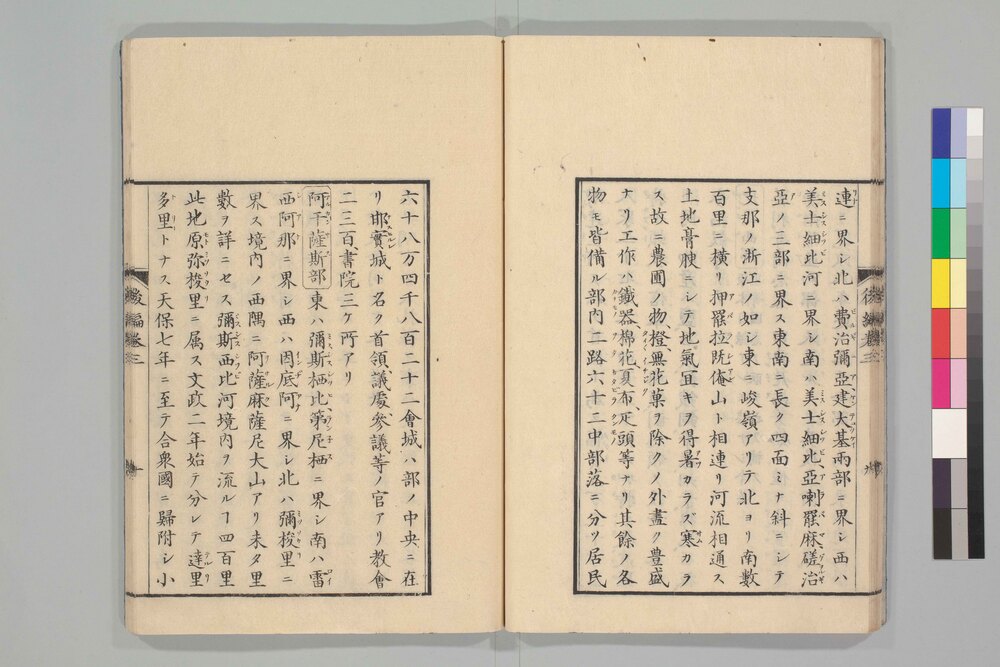 連ニ界シ北ハ費治彌亞建大基兩部ニ界シ西ハ
美士細比河ニ界シ南ハ美士細比亞喇罷麻磋治
亞ノ三部ニ界ス東南ニ長ク四面ミナ斜ニシテ
支那ノ浙江ノ如シ東ニ峻嶺アリテ北ヨリ南數
百里ニ横リ押罷拉既俺山ト相連リ河流相通ス
土地膏腴ニシテ地氣宜キヲ得暑カラズ寒カラ
ス故ニ農圃ノ物橙無花菓ヲ除クノ外盡ク豊盛
ナリ工作ハ鐵器棉花夏布疋頭等ナリ其餘ノ各
物モ皆備ル部内ニ路六十二中部落ニ分ツ居民
六十八万四千八百二十二會城ハ部ノ中央ニ在
リ耶實城ト名ク首領議處參議等ノ官アリ教會
二三百書院三ケ所アリ
阿干薩斯部東ハ彌斯栖比第尼栖ニ界シ南ハ雷
西阿那ニ界シ西ハ因底阿ニ界シ北ハ彌梭里ニ
界ス境内ノ西隅ニ阿薩麻薩尼大山アリ未タ里
數ヲ詳ニセス彌斯西比河境内ヲ流ルヿ四百里
此地原弥梭里ニ属ス文政二年始テ分レテ達里
多里トナス天保七年ニ至テ合衆國ニ歸附シ小